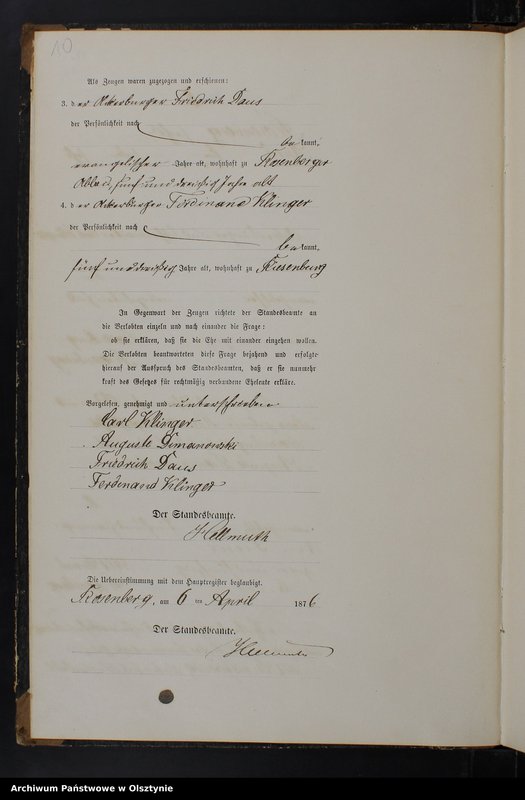 10
Als Zeugen waren zugezogen und erschienen:
3. der Ackerbürger Friedrich Daus
der Persönlichkeit nach
bekannt,
evangelischer Jahre alt, wohnhaft zu Rosenberg
fünf und dreißig Jahre alt
4. der Ackerbürger Ferdinand Klinger
der Persönlichkeit nach
bekannt,
fünf und dreißig Jahre alt, wohnhaft zu Riesenburg
In Gegenwart der Zeugen richtete der Standesbeamte an
die Verlobten einzeln und nach einander die Frage:
ob sie erklären, daß sie die Ehe mit einander eingehen wollen.
Die Verlobten beantworteten diese Frage bejahend und erfolgte
hierauf der Ausspruch des Standesbeamten, daß er sie nunmehr
kraft des Gesetzes für rechtmäßig verbundene Eheleute erkläre.
Vorgelesen, genehmigt und unterschrieben
Carl Klinger
Auguste Simanowski
Friedrich Daus
Ferdinand Klinger
Der Standesbeamte.
Hellmuth
Die Uebereinstimmung mit dem Hauptregister beglaubigt.
Rosenberg, am 6 ten April 1876
Der Standesbeamte.
Hellmuth
Archiwum Państwowe w Olsztynie